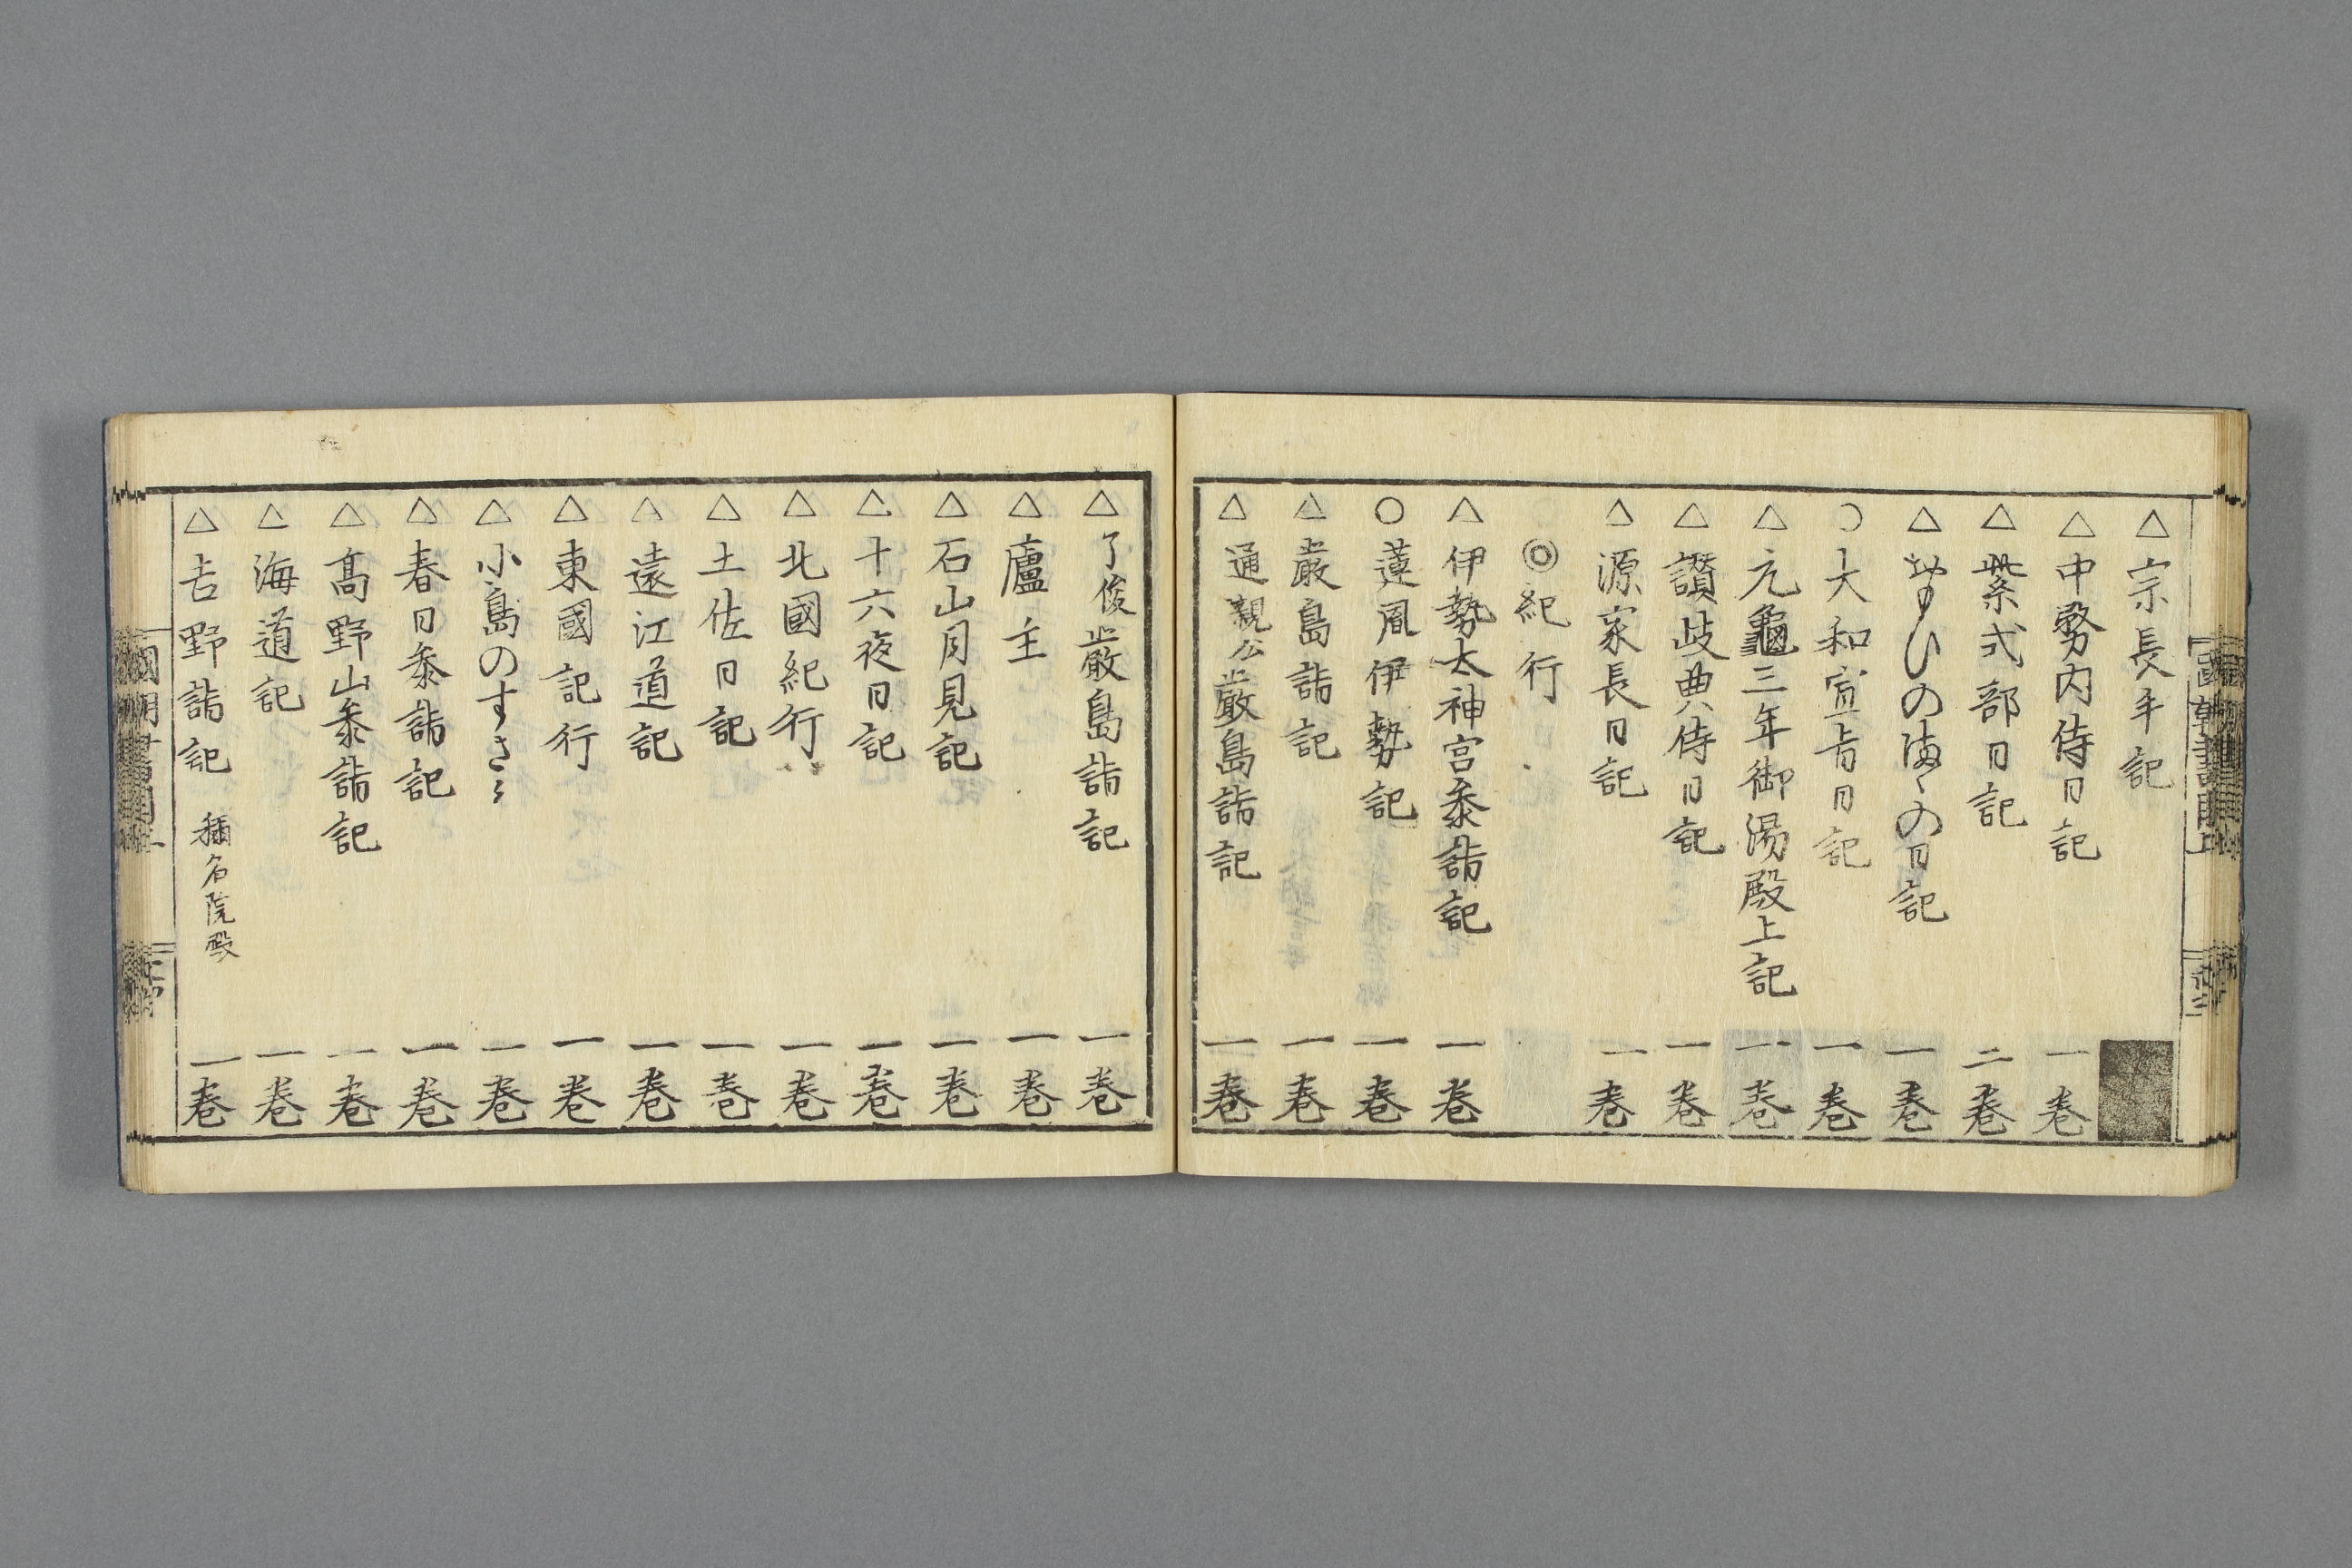 △宗長手記
△中務内侍日記 一巻
△紫式部日記 二巻
△おもひのまゝの日記 一巻
○大和宣旨日記 一巻
△元龜三年御湯殿上記 一巻
△讚岐典侍日記 一巻
△源家長日記 一巻
◎紀行
△伊勢太神宮参詣記 一巻
○蓮胤伊勢記 一巻
△嚴島詣記 一巻
△通親公嚴島詣記 一巻
△了俊嚴島詣記 一巻
△廬主 一巻
△石山月見記 一巻
△十六夜日記 一巻
△北國紀行 一巻
△土佐日記 一巻
△遠江道記 一巻
△東國記行 一巻
△小島のすさミ 一巻
△春日参詣記 一巻
△髙野山参詣記 一巻
△海道記 一巻
△吉野詣記 稱名院殿 一巻